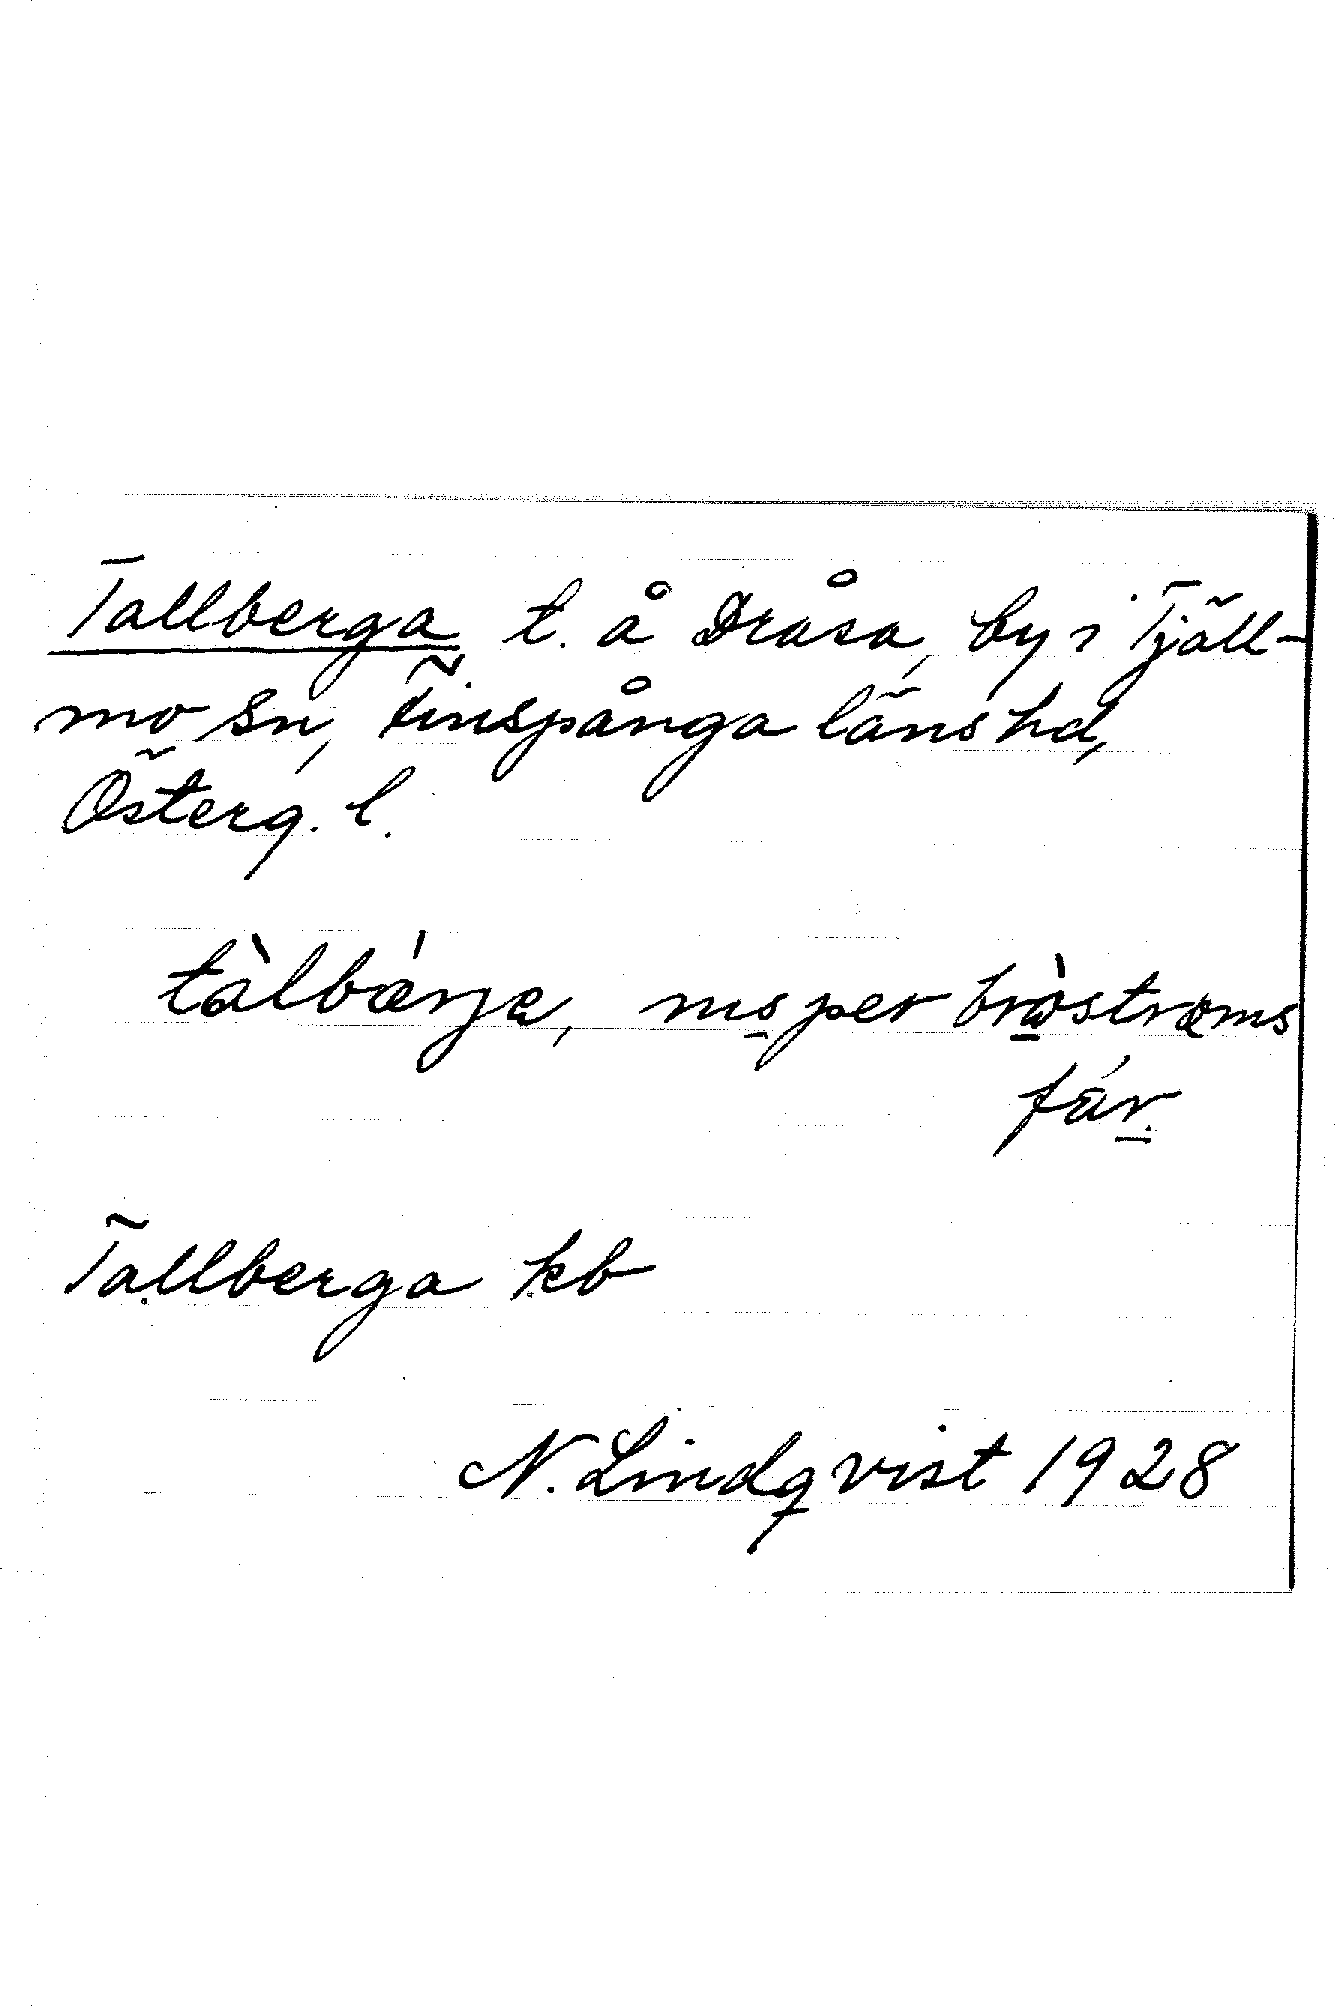 Tallberga, t. å Dråsa, by i Tjäll-
mo sn, Finspånga läns hd,
Österg. l.
tàlbǽrja, ms per bròstrœms
fár.
Tallberga kb
N. Lindqvist 1928